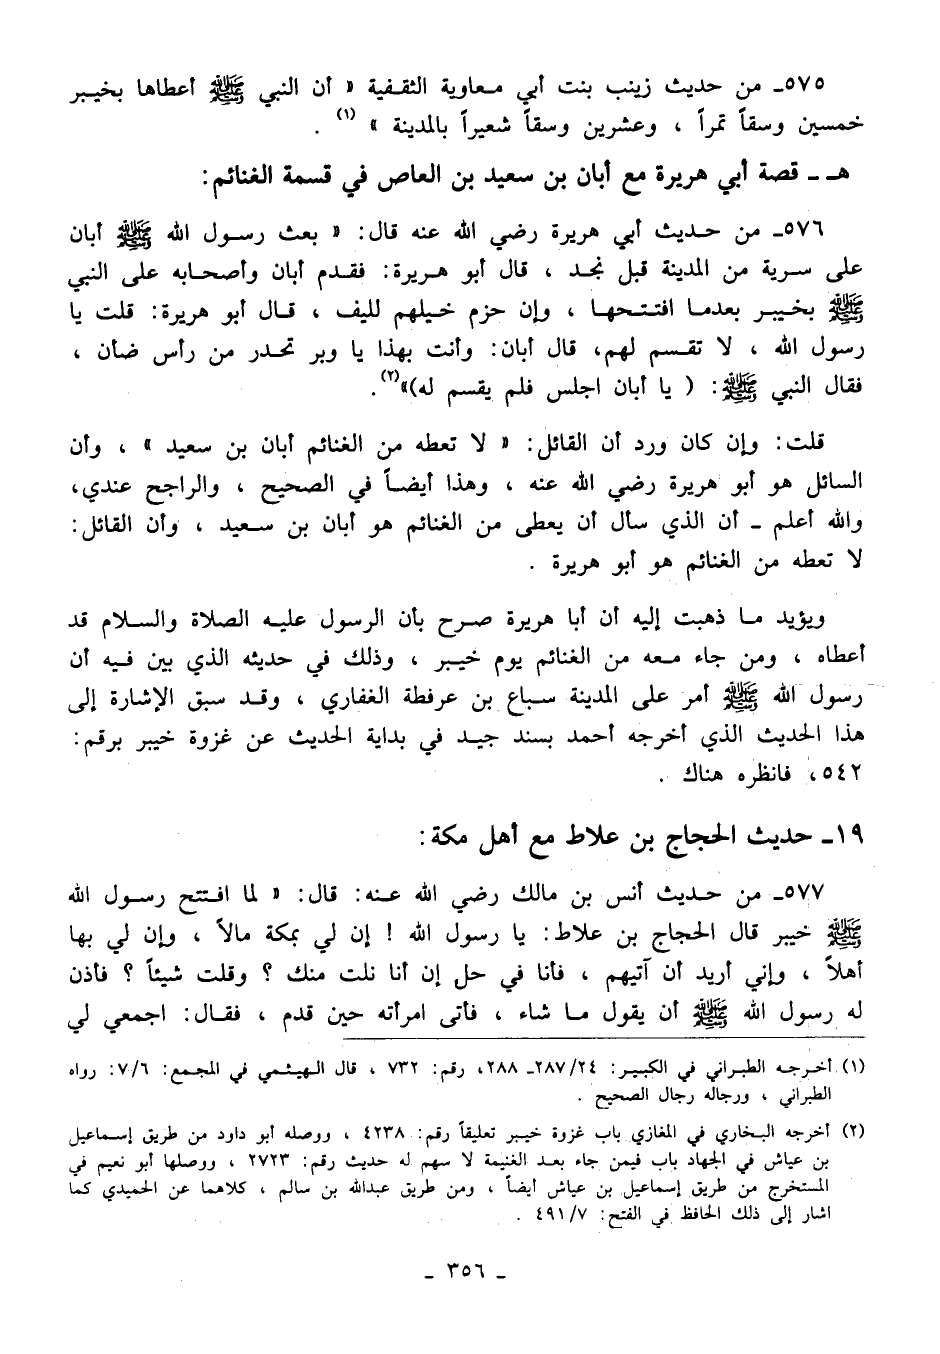 ٥٧٥ـ من حديث زينب بنت أبي معاوية الثقفية « أن النبي ﷺ أعطاها بخيبر
خمسين وسقاً تمراً ، وعشرين وسقاً شعيراً بالمدينة » (١) .
هـ ـ قصة أبي هريرة مع أبان بن سعيد بن العاص في قسمة الغنائم:
٥٧٦ـ من حديث أبي هريرة رضي الله عنه قال: « بعث رسول الله ﷺ أبان
على سرية من المدينة قبل نجد ، قال أبو هريرة: فقدم أبان وأصحابه على النبي
ﷺ بخيبر بعدما افتتحها ، وإن حزم خيلهم لليف ، قال أبو هريرة: قلت يا
رسول الله ، لا تقسم لهم، قال أبان: وأنت بهذا يا وبر تحدر من رأس ضأن ،
فقال النبي ﷺ: ( يا أبان اجلس فلم يقسم له)»(٢).
قلت: وإن كان ورد أن القائل: « لا تعطه من الغنائم أبان بن سعيد » ، وأن
السائل هو أبو هريرة رضي الله عنه ، وهذا أيضاً في الصحيح ، والراجح عندي،
والله أعلم ـ أن الذي سأل أن يعطى من الغنائم هو أبان بن سعيد ، وأن القائل:
لا تعطه من الغنائم هو أبو هريرة .
ويؤيد ما ذهبت إليه أن أبا هريرة صرح بأن الرسول عليه الصلاة والسلام قد
أعطاه ، ومن جاء معه من الغنائم يوم خيبر ، وذلك في حديثه الذي بين فيه أن
رسول الله ﷺ أمر على المدينة سباع بن عرفطة الغفاري ، وقد سبق الإشارة إلى
هذا الحديث الذي أخرجه أحمد بسند جيد في بداية الحديث عن غزوة خيبر برقم:
٥٤٢، فانظره هناك .
١٩ـ حديث الحجاج بن علاط مع أهل مكة:
٥٧٧ـ من حديث أنس بن مالك رضي الله عنه: قال: « لما افتتح رسول الله
ﷺ خيبر قال الحجاج بن علاط: يا رسول الله ! إن لي بمكة مالاً ، وإن لي بها
أهلاً ، وإني أريد أن آتيهم ، فأنا في حل إن أنا نلت منك ؟ وقلت شيئاً ؟ فأذن
له رسول الله ﷺ أن يقول ما شاء ، فأتى امرأته حين قدم ، فقال: اجمعي لي
(١) أخرجه الطبراني في الكبير: ٢٨٧/٢٤ـ ٢٨٨، رقم: ٧٣٢ ، قال الهيثمي في المجمع: ٧/٦: رواه
الطبراني ، ورجاله رجال الصحيح .
(٢) أخرجه البخاري في المغازي باب غزوة خيبر تعليقاً رقم: ٤٢٣٨ ، ووصله أبو داود من طريق إسماعيل
بن عياش في الجهاد باب فيمن جاء بعد الغنيمة لا سهم له حديث رقم: ٢٧٢٣ ، ووصلها أبو نعيم في
المستخرج من طريق إسماعيل بن عياش أيضاً ، ومن طريق عبدالله بن سالم ، كلاهما عن الحميدي كما
اشار إلى ذلك الحافظ في الفتح: ٤٩١/٧ .
ـ ٣٥٦ ـ